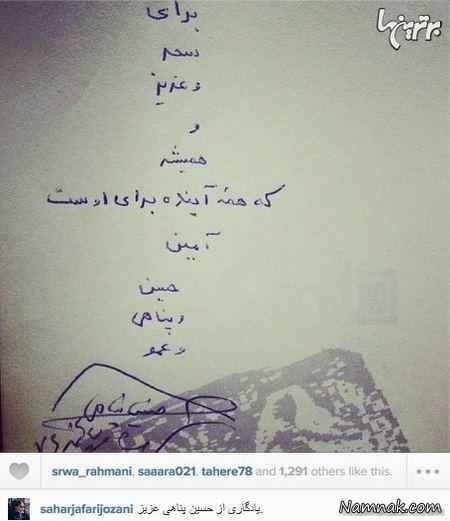 برترینها
برای
سحر
و عزیز
و
همیشه
که همهٔ آینده برای اوست
آمین
حسین
و پناهی
و عمو
حسین پناهی
srwa_rahmani, saaara021, tahere78 and 1,291 others like this.
saharjafarijozani یادگاری از حسین پناهی عزیز.
Namnak.com